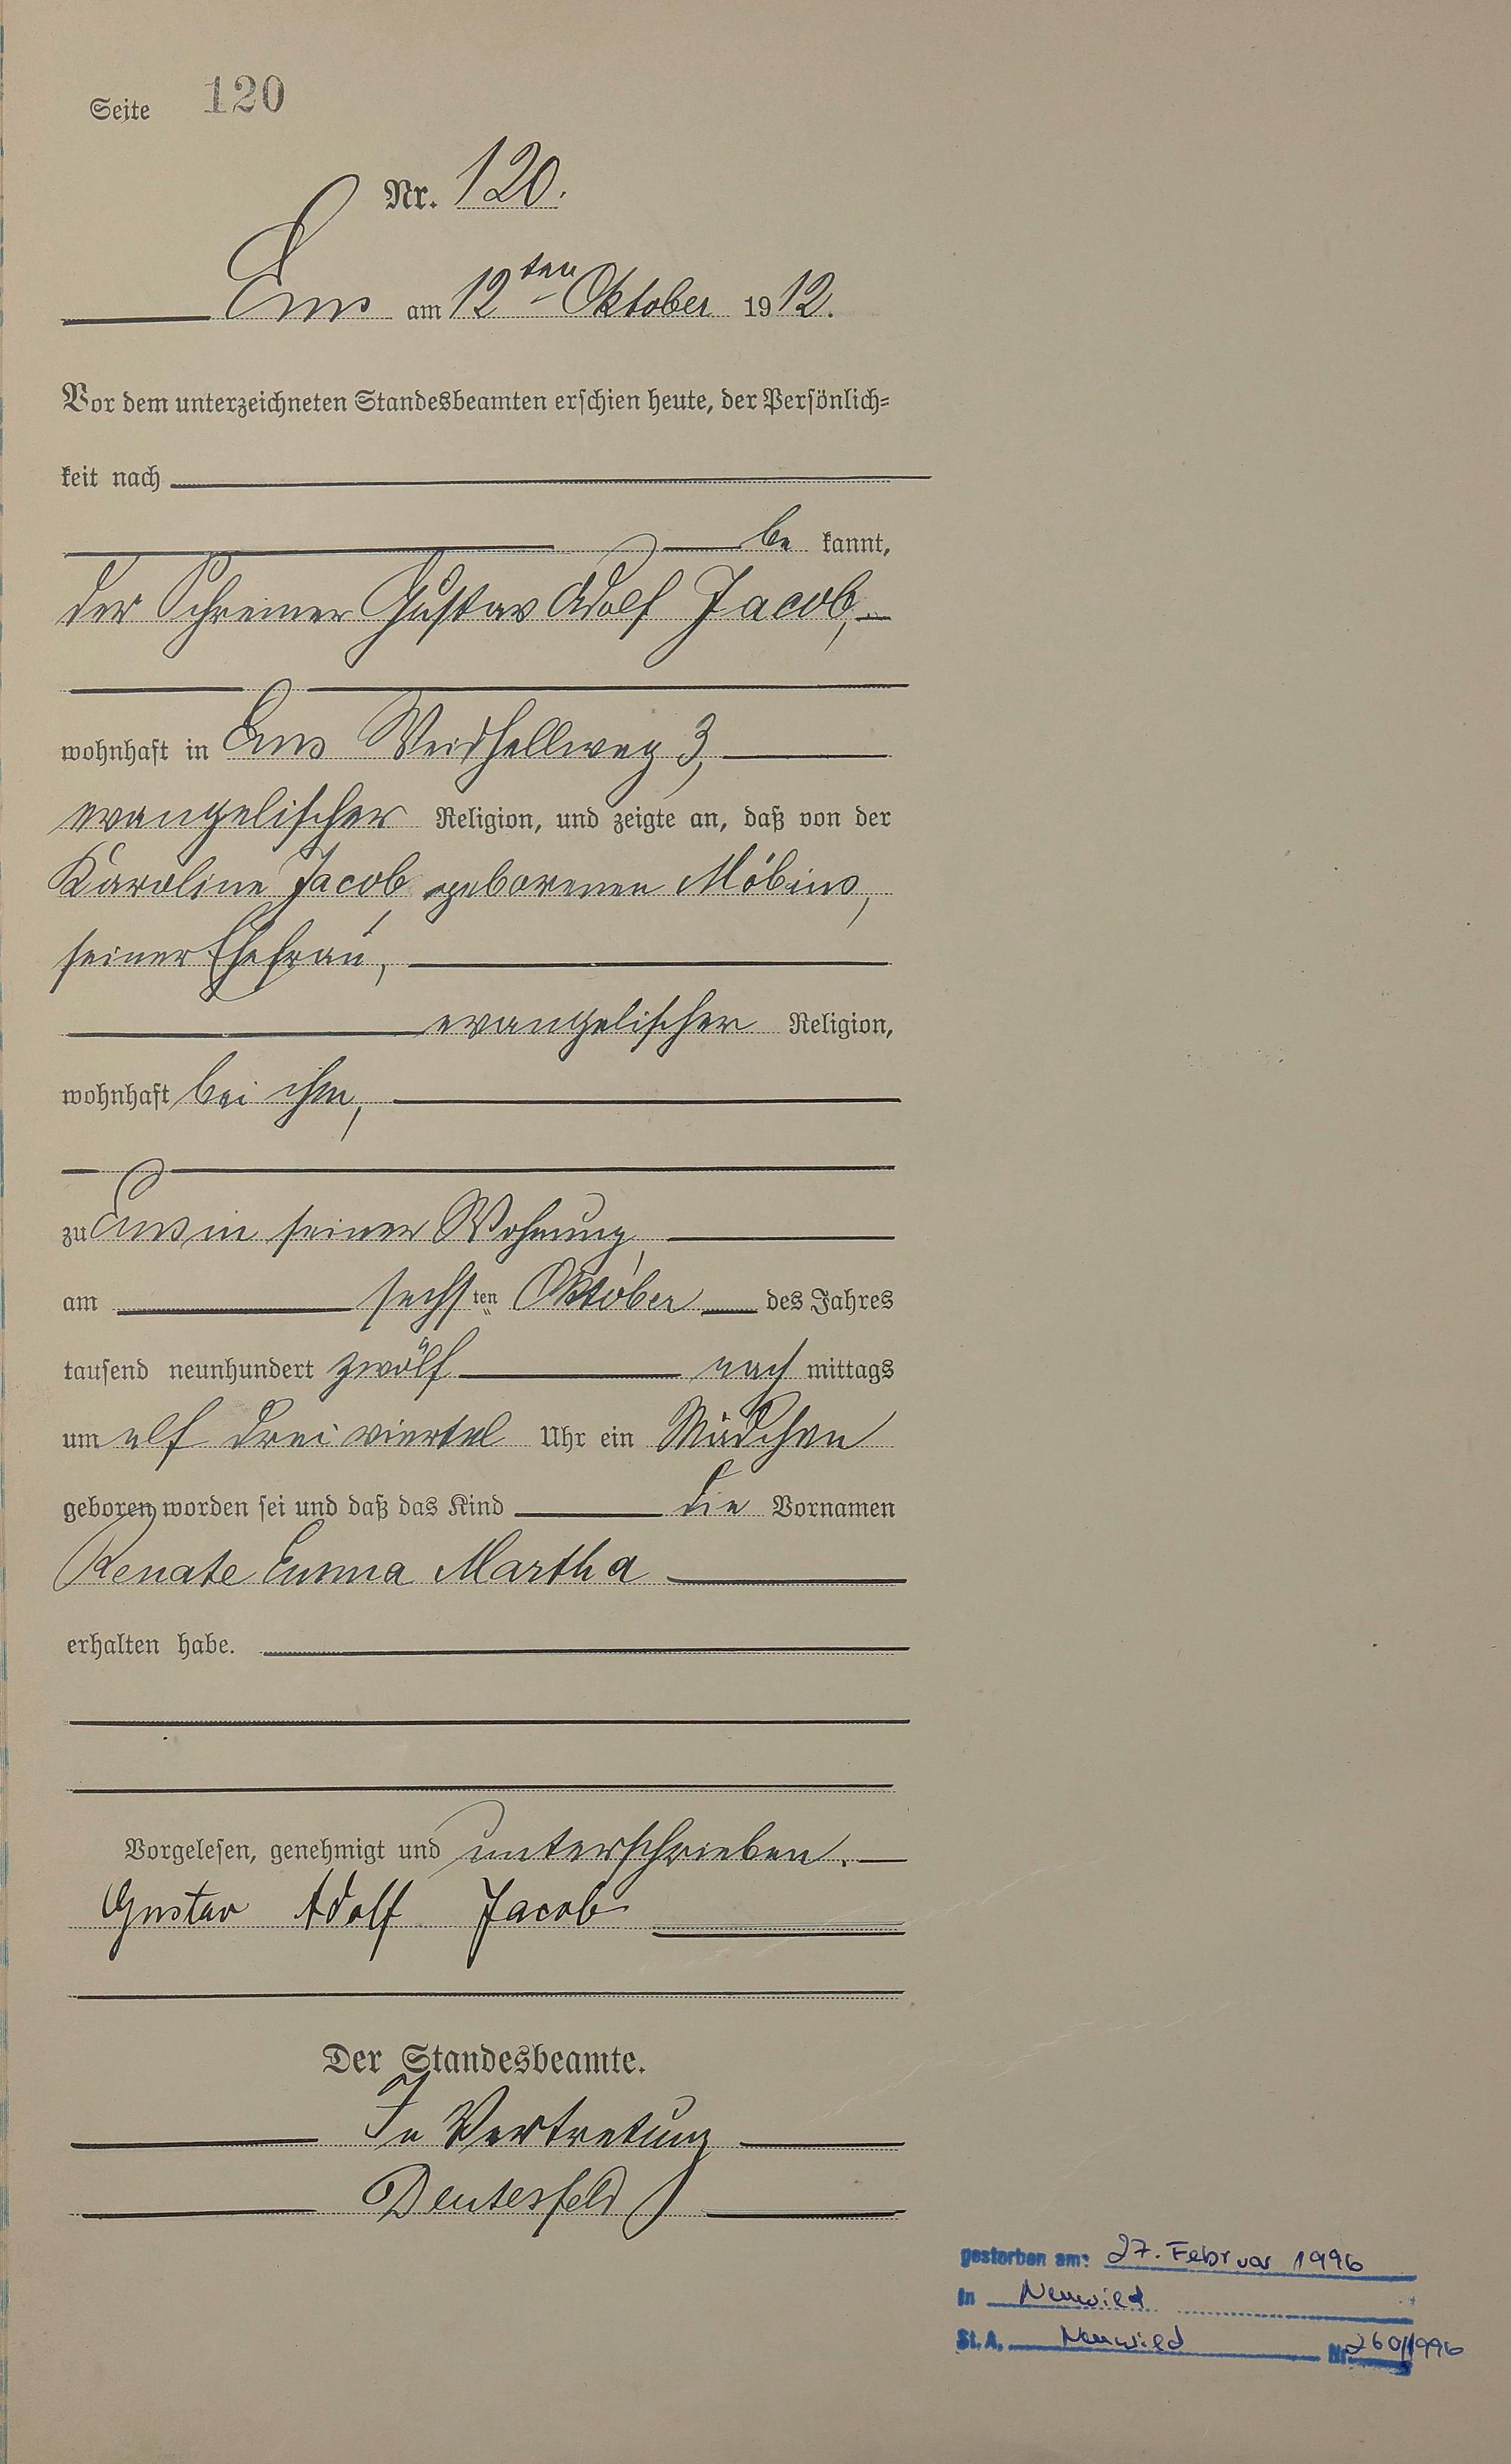 Seite 120
Nr. 120.
Ems am 12ten Oktober 1912.
Vor dem unterzeichneten Standesbeamten erschien heute, der Persönlich=
keit nach
be kannt,
der Schreiner Gustav Adolf Jacob,
wohnhaft in Ems Weidhellweg 3,
evangelischer Religion, und zeigte an, daß von der
Karoline Jacob geborenen Möbius,
seiner Ehefrau,
evangelischer Religion,
wohnhaft bei ihm,
zu Ems in seiner Wohnung,
am sechsten Oktober des Jahres
tausend neunhundert zwölf nach mittags
um elf dreiviertel Uhr ein Mädchen
geboren worden sei und daß das Kind die Vornamen
Renate Emma Martha
erhalten habe.
Vorgelesen, genehmigt und unterschrieben.
Gustav Adolf Jacob
Der Standesbeamte.
In Vertretung
Deutesfeld
gestorben am: 27. Februar 1996
in Neuwied
St. A. Neuwied Nr. 260/1996